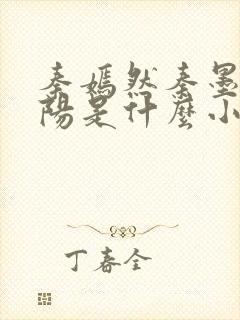 秦嫣然秦墨
陽是什麼小
丁春全